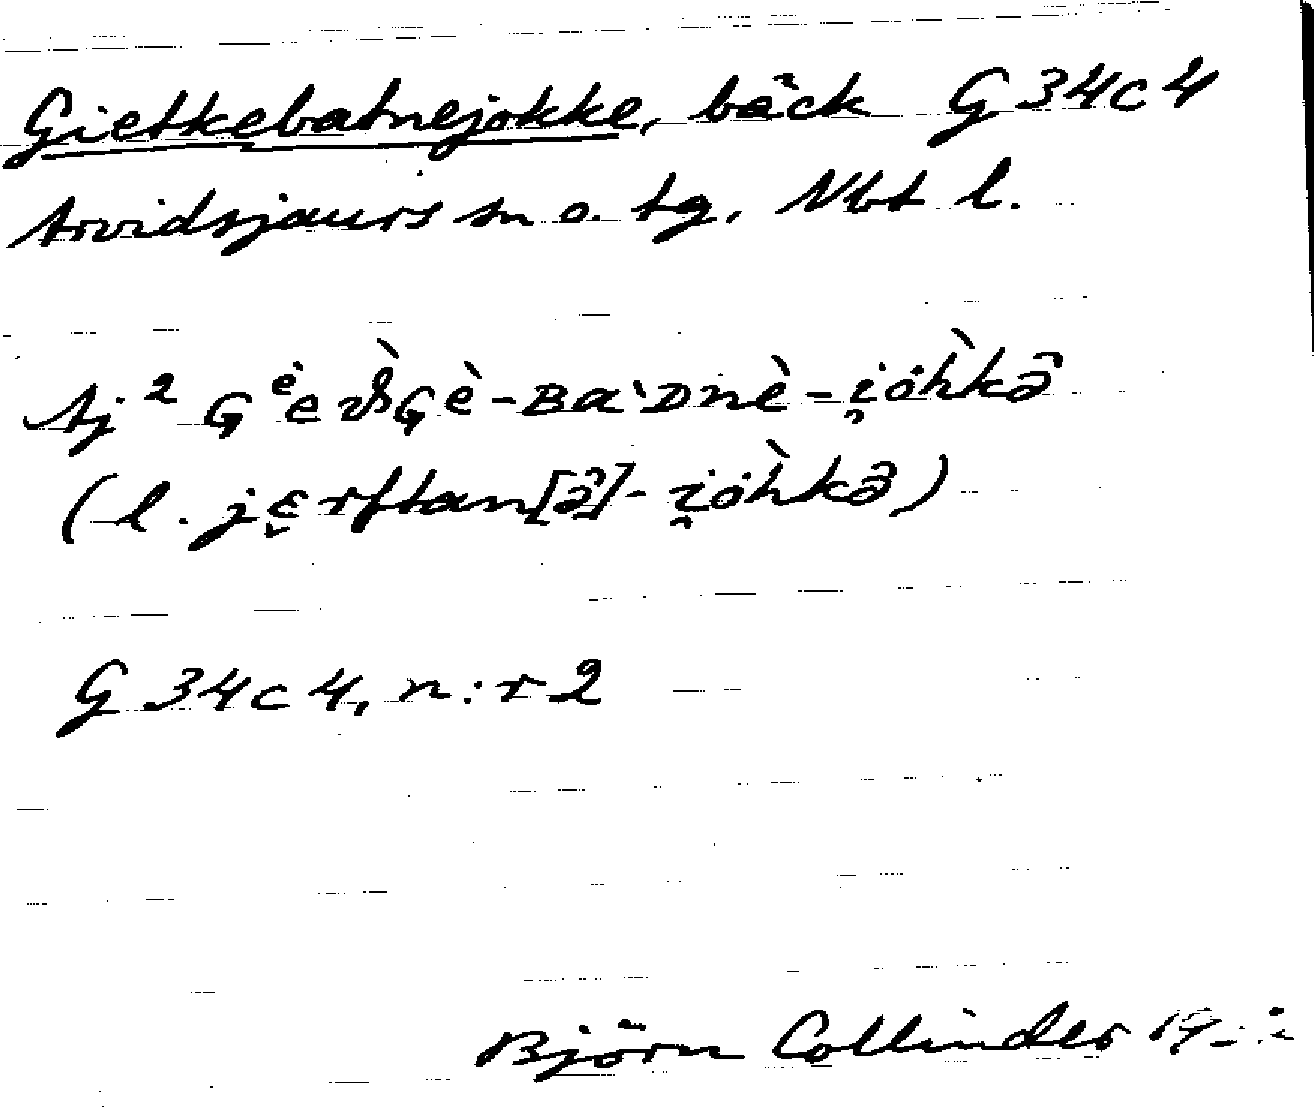 Gietkebatnejokke, bäck G34c4
Arvidsjaurs sn o. tg, Nbt l.
Aj² Gᵉ̀eϑ̀Gè-Ba`Dnè-i̯ȯh̀kə̑
(l. jɛ̣rftan[ə̑]-i̯ȯh̀kə̑)
G 34c4, n:r 2
Björn Collinder